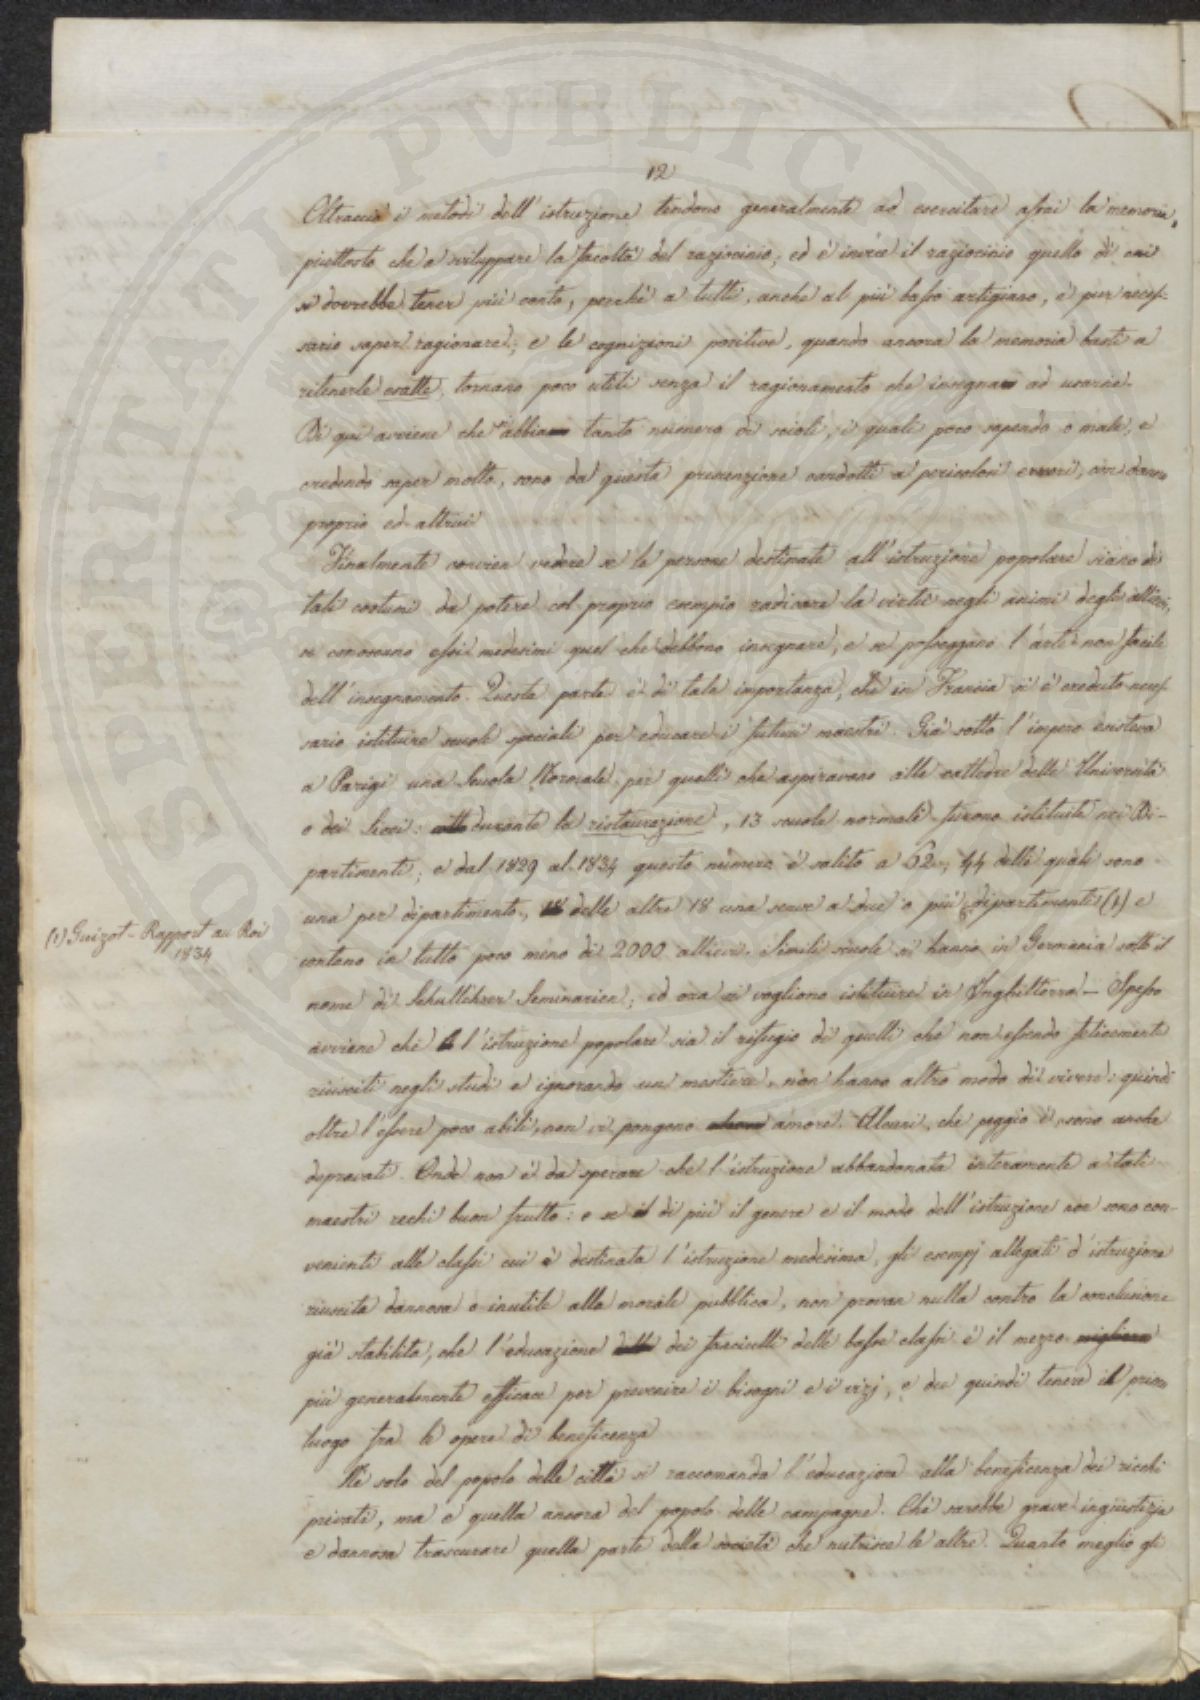 12
Oltracciò i metodi dell'istruzione tendono generalmente ad esercitare assai la memoria,
piuttosto che a sviluppare la facoltà del raziocinio; ed è invece il raziocinio quello di cui
si dovrebbe tener più conto, perchè a tutti, anche al più basso artigiano, è pur neces-
sario saper ragionare; e le cognizioni positive, quando ancora la memoria basti a
ritenerle esatte, tornano poco utili senza il ragionamento che insegna ad usarne.
Di qui avviene che abbia tanto numero di scioli, i quali poco sapendo o male, e
credendo saper molto, sono da questa presunzione condotti a pericolosi errori, con danno
proprio ed altrui
Finalmente convien vedere se le persone destinate all'istruzione popolare siano di
tali costumi da potere col proprio esempio radicare la virtù negli animi degli allievi,
se conoscano essi medesimi quel che debbono insegnare, e se posseggano l'arte non facile
dell'insegnamento. Questa parte è di tale importanza, che in Francia si è creduto neces-
sario istituire scuole speciali per educare i futuri maestri. Già sotto l'impero esisteva
a Parigi una Scuola Normale per quelli che aspiravano alle cattedre delle Università
o dei Licei: durante la ristaurazione, 13 scuole normali furono istituite nei Di-
partimenti; e dal 1829 al 1834 questo numero è salito a 62, 44 delle quali sono
una per dipartimento, delle altre 18 una serve a due o più dipartimenti (1) e
(1) Guizot - Rapport au Roi
1834
contano in tutto poco meno di 2000 allievi. Simili scuole si hanno in Germania sotto il
nome di Schullehrer Seminarien; ed ora si vogliono istituire in Inghilterra — Spesso
avviene che l'istruzione popolare sia il rifugio di quelli che non essendo felicemente
riusciti negli studi e ignorando un mestiere, non hanno altro modo di vivere: quindi
oltre l'essere poco abili, non vi pongono amore. Alcuni, che peggio è, sono anche
depravati. Onde non è da sperare che l'istruzione abbandonata interamente a tali
maestri rechi buon frutto: e se di più il genere e il modo dell'istruzione non sono con-
venienti alle classi cui è destinata l'istruzione medesima, gli esempj allegati d'istruzione
riuscita dannosa o inutile alla morale pubblica, non provan nulla contro la conclusione
già stabilita, che l'educazione dei fanciulli delle basse classi è il mezzo
più generalmente efficace per prevenire i bisogni e i vizj, e dee quindi tenere il primo
luogo fra le opere di beneficenza
Nè solo del popolo delle città si raccomanda l'educazione alla beneficenza dei ricchi
privati, ma e quella ancora del popolo delle campagne. Chè sarebbe grave ingiustizia
e dannosa trascurare quella parte della società che nutrisce le altre. Quanto meglio gli